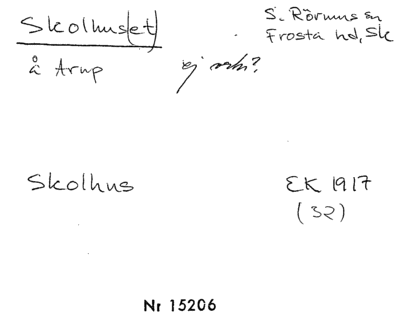 Skolhus(et)
S. Rörums sn
Frosta hd, Sk
å Arup
ej
Skolhus
EK 1917
(32)
Nr 15206